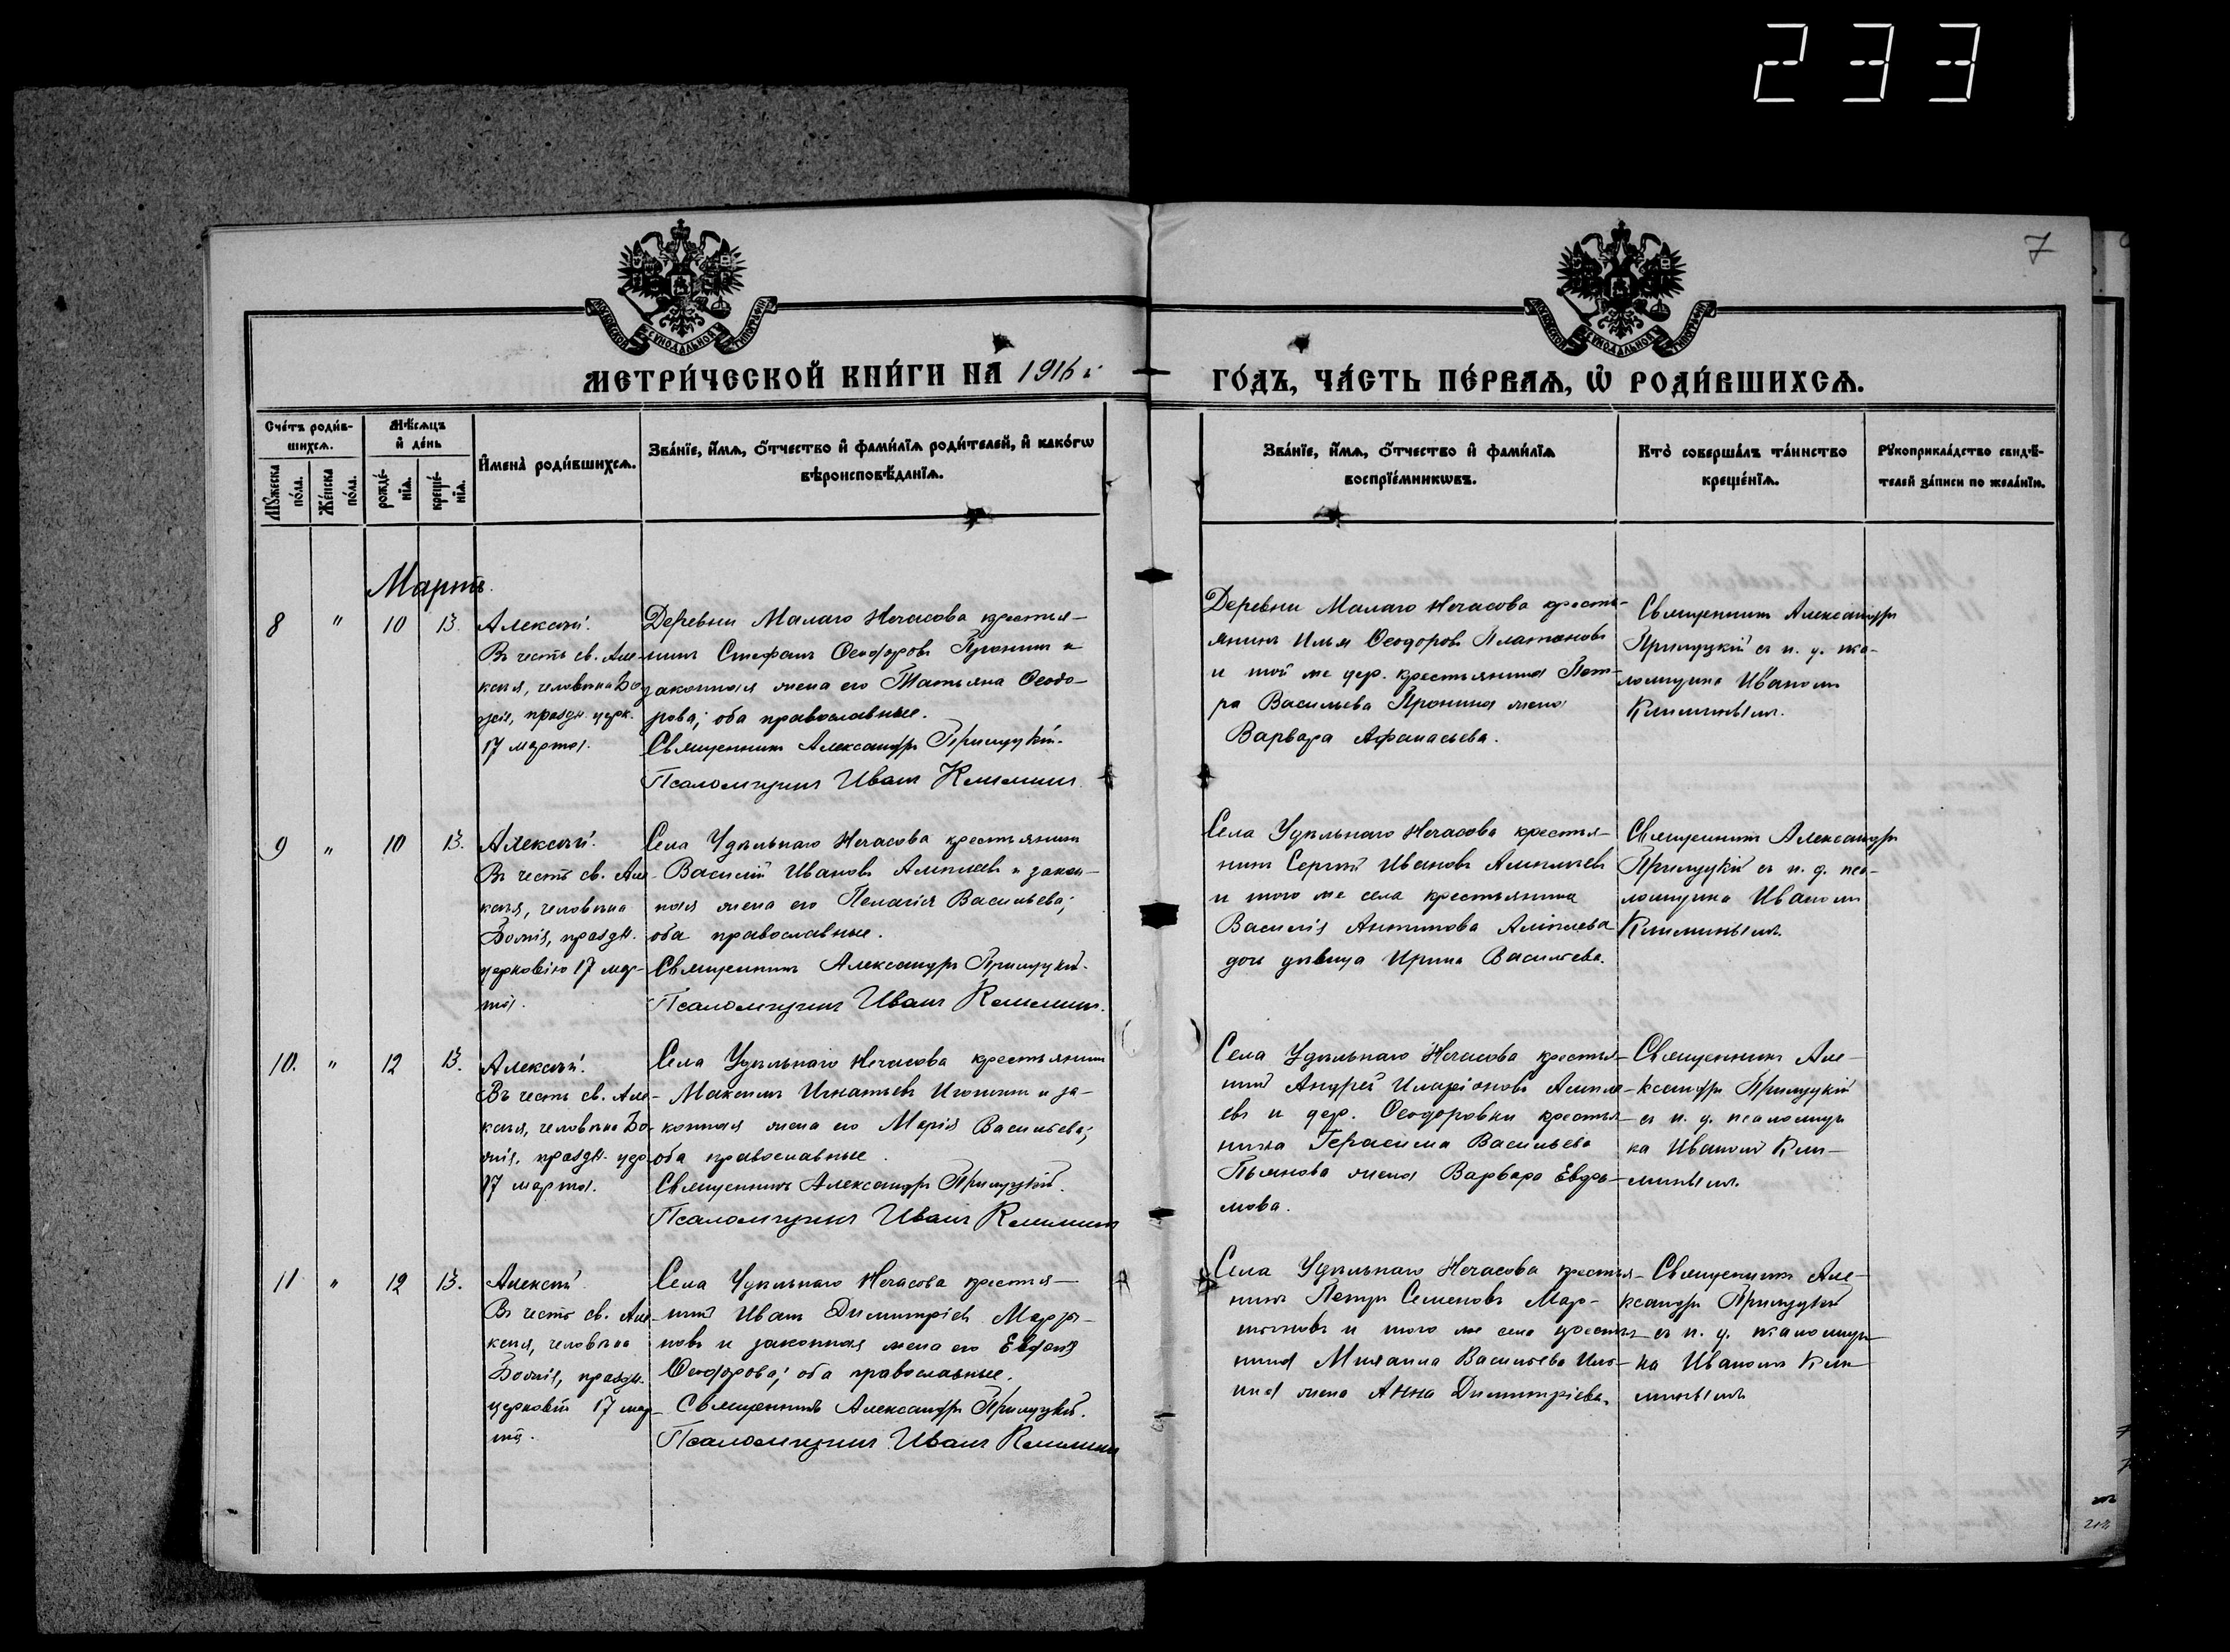 233
7
МОСКОВСКОЙ СУНОДАЛЬНОЙ ТИПОГРАФІИ
МОСКОВСКОЙ СУНОДАЛЬНОЙ ТИПОГРАФІИ
МЕТРИ́ЧЕСКОЙ КНИ́ГИ НА 1916 г
ГО́ДЪ, ЧА́СТЬ ПЕ́РВАѦ, Ѽ РОДИ́ВШИХСѦ.
Сче́тъ роди́в-
шихсѧ.
Мꙋ́жеска
по́ла.
Же́нска
по́ла.
Мѣ́сѧцъ
и҆ де́нь
рожде́-
нїѧ.
креще́-
нїѧ.
И҆мена̀ роди́вшихсѧ.
Зва́нїе, и҆́мѧ, ѻ҆́тчество и҆ фами́лїѧ роди́телей, и҆ како́гѡ
вѣроисповѣ́данїѧ.
Зва́нїе, и҆́мѧ, ѻ҆́тчество и҆ фами́лїѧ
воспрїе́мникѡвъ.
Кто̀ соверша́лъ та́инство
креще́нїѧ.
Рꙋкоприкла́дство свидѣ́-
телей за́писи по жела́нїю.
Мартъ.
8 " 10 13. Алексѣй.
Въ честь св. Але-
ксія, человѣка Бо-
жія, праздн. церк.
17 марта.
Деревни Малаго Нечасова крестья-
нинъ Стефанъ Ѳеодоровъ Пронинъ и
законная жена его Татьяна Ѳеодо-
рова; оба православные.
Священникъ Александръ Прилуцкій.
Псаломщикъ Иванъ Климинъ.
Деревни Малаго Нечасова кресть-
янинъ Илья Ѳеодоровъ Платоновъ
и той же дер. крестьянина Пет-
ра Васильева Пронина жена
Варвара Афанасьева.
Священникъ Александръ
Прилуцкій съ и. д. пса-
ломщика Иваномъ
Климинымъ.
9 " 10 13. Алексѣй.
Въ честь св. Але-
ксія, человѣка
Божія, праздн.
церковію 17 мар-
та.
Села Удѣльнаго Нечасова крестьянинъ
Василій Ивановъ и закон-
ная жена его Пелагія Васильева;
оба православные.
Священникъ Александръ Прилуцкій.
Псаломщикъ Иванъ Климинъ.
Села Удѣльнаго Нечасова крестья-
нинъ Сергѣй Ивановъ
и того же села крестьянина
Василія Антипова
дочь дѣвица Ирина Васильева.
Священникъ Александръ
Прилуцкій съ и. д. пса-
ломщика Иваномъ
Климинымъ.
10. " 12 13. Алексѣй.
Въ честь св. Але-
ксія, человѣка Бо-
жія, праздн. цер.
17 марта.
Села Удѣльнаго Нечасова крестьянинъ
Максимъ Игнатьевъ и за-
конная жена его Марія Васильева;
оба православные.
Священникъ Александръ Прилуцкій.
Псаломщикъ Иванъ Климинъ
Села Удѣльнаго Нечасова крестья-
нинъ Андрей Иларіоновъ
и дер. Ѳеодоровки крестья-
нина Герасима Васильева
Пьянова жена Варвара Евдо-
мова.
Священникъ Але-
ксандръ Прилуцкій
съ и. д. псаломщи
ка Иваномъ Кли-
минымъ.
11 " 12 13. Алексѣй
Въ честь св. Але-
ксія, человѣка
Божія, праздн.
церковію 17 мар-
та.
Села Удѣльнаго Нечасова крестья-
нинъ Иванъ Димитріевъ
и законная жена его
Ѳеодорова; оба православные.
Священникъ Александръ Прилуцкій.
Псаломщикъ Иванъ Климинъ
Села Удѣльнаго Нечасова крестья-
нинъ Петръ Семеновъ Мар-
и того же села крестья-
нина Михаила Васильева
жена Анна Димитріева.
Священникъ Але-
ксандръ Прилуцкій
съ и. д. псаломщи-
ка Иваномъ Кли-
минымъ